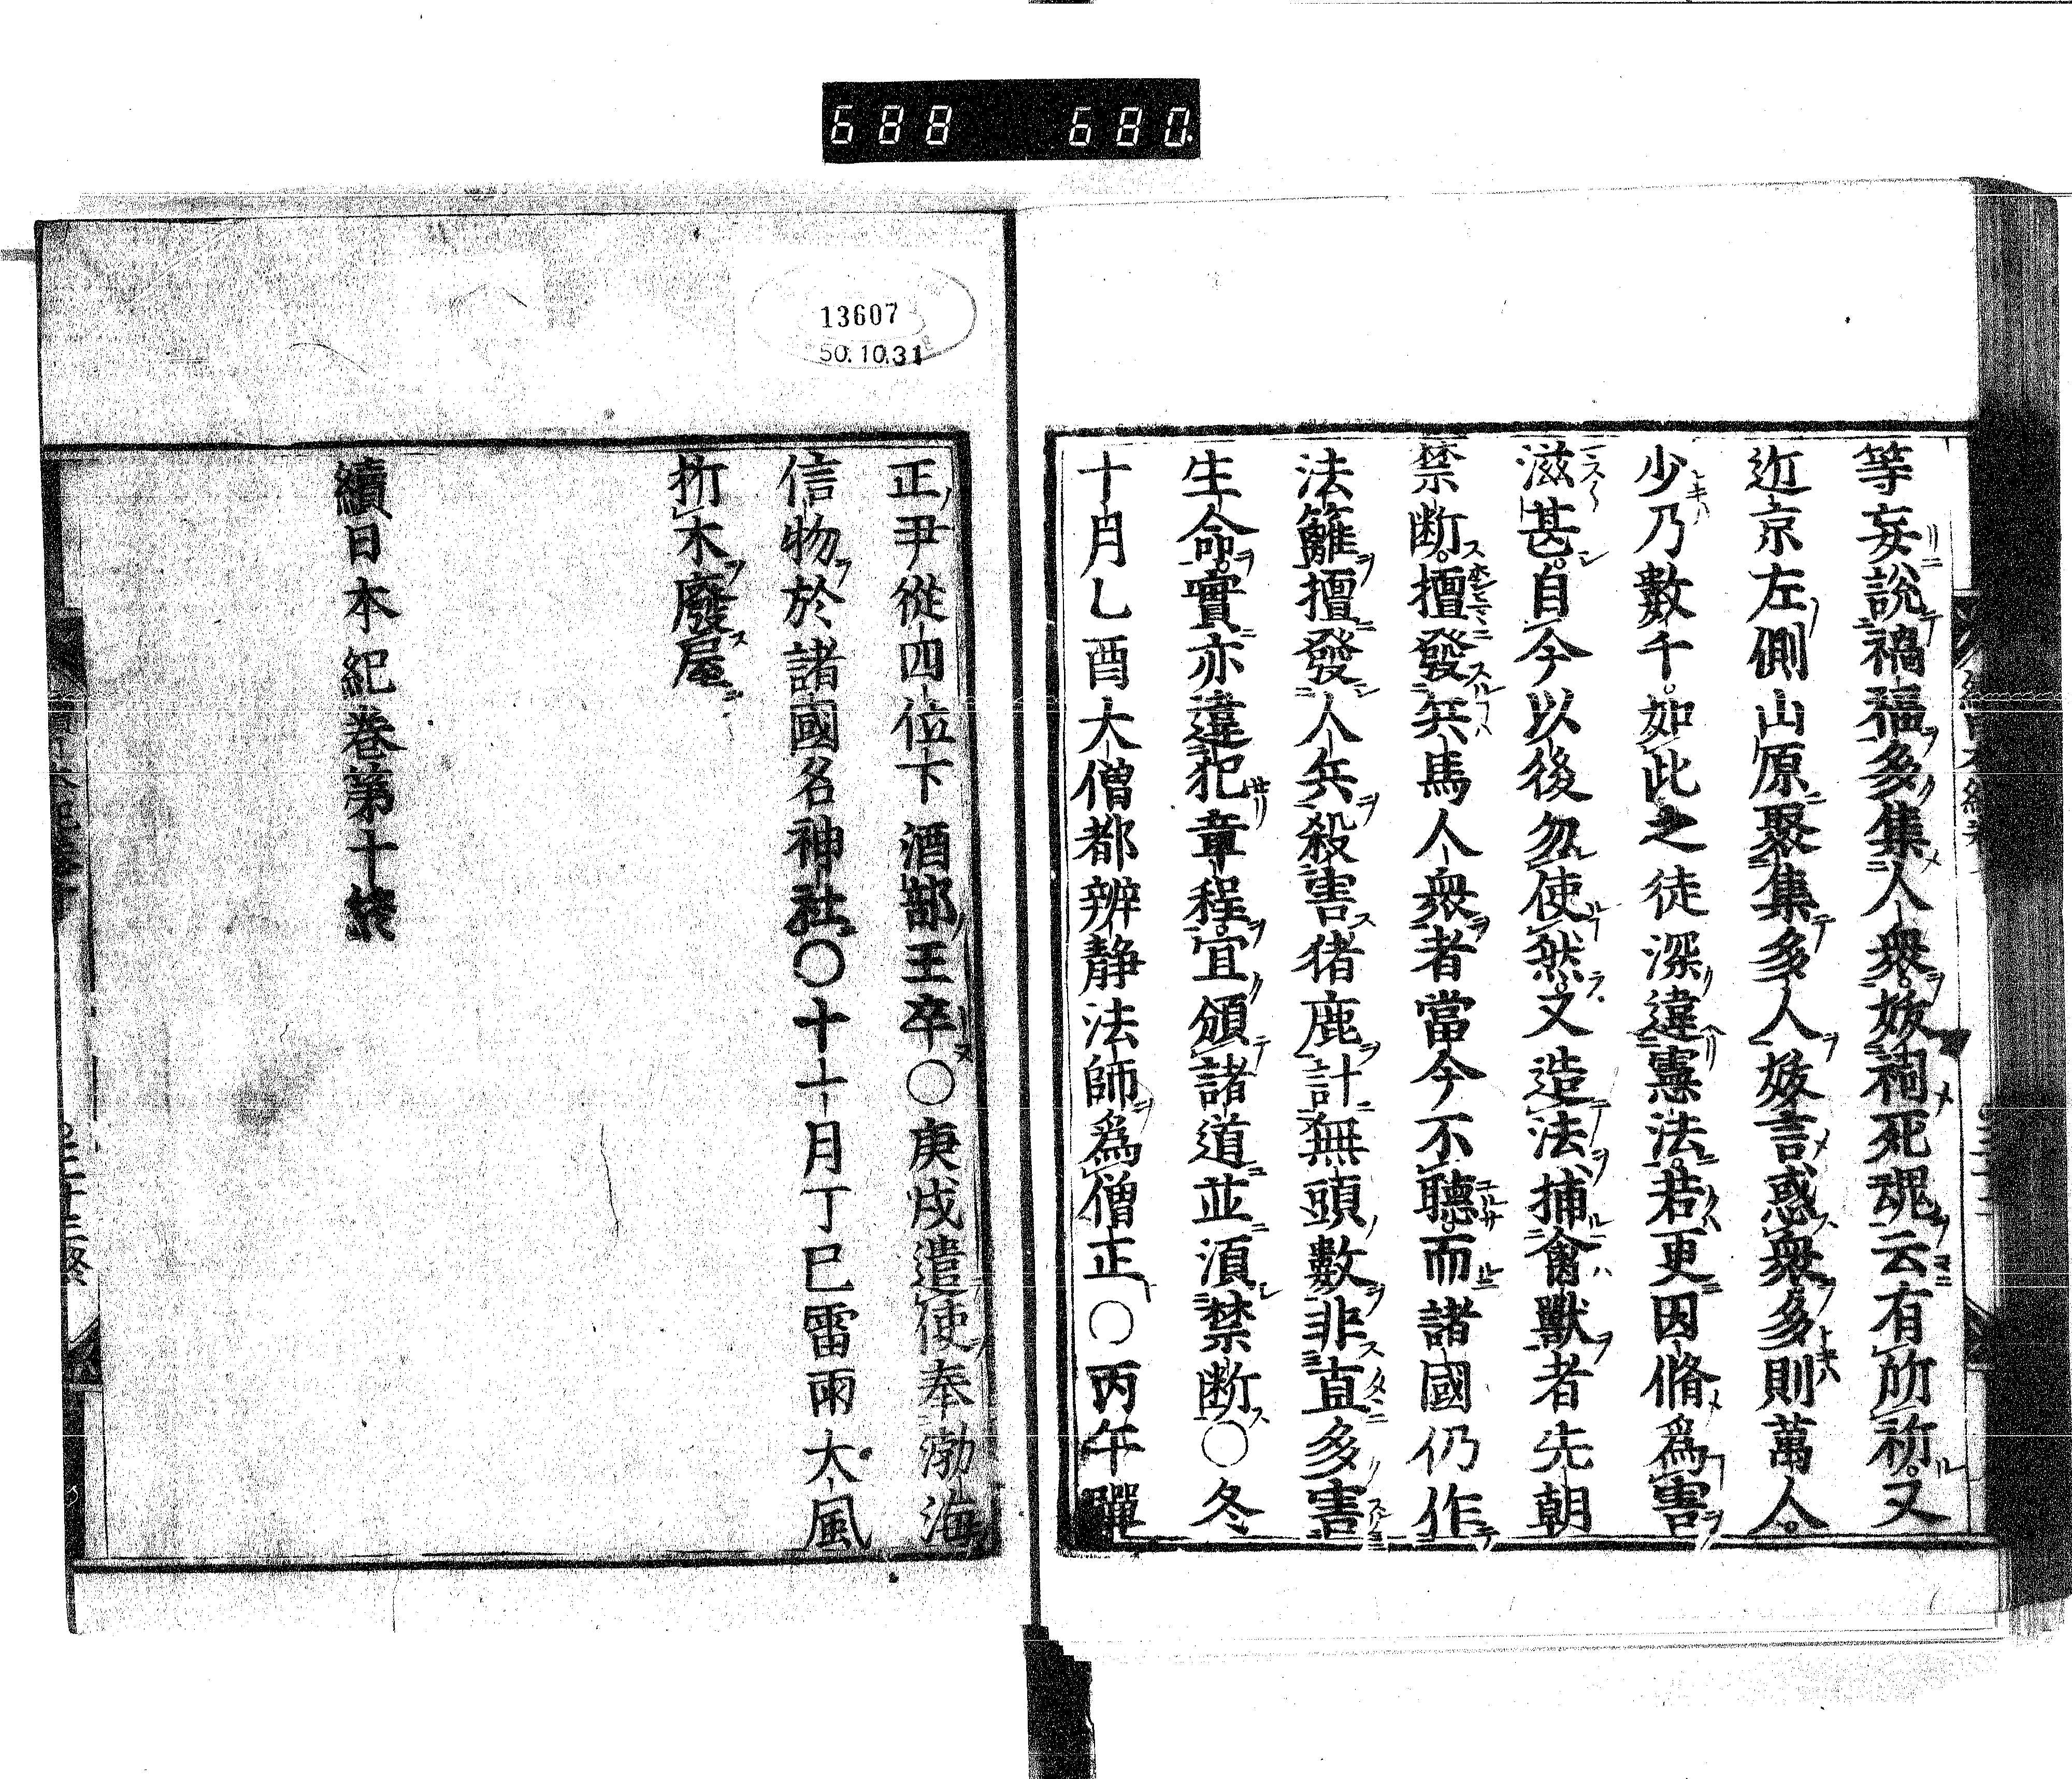 688 680
等妄說禍福多集人衆妖祠死魂云有所祈又
近京左側山原聚集多人妖言惑衆多則萬人
少乃數千如此之徒深違憲法若更因脩爲害
滋甚自今以後勿使然又造法捕禽獸者先朝
禁断擅發兵馬人衆者當今不聽而諸國仍作
法籬擅發人兵殺害猪鹿計無頭數非直多害
生命實亦違犯章程宜頒諸道並湏禁断〇冬
十月乙酉大僧都辨静法師爲僧正〇丙午彈
13607
50.10.31
正尹從四位下酒部王卒〇庚戌遣使奉渤海
信物於諸國名神社〇十一月丁巳雷雨大風
折木廢屋
續日本紀巻第十終